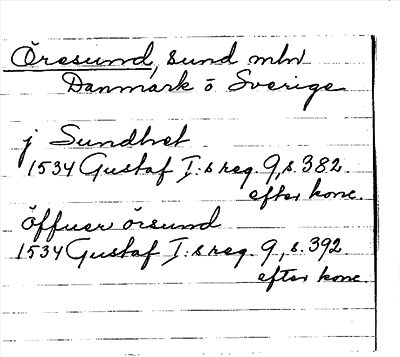 Öresund, sund mln
Danmark o Sverige
j Sundhet
1534 Gustaf I:s reg. 9, s. 382.
efter konc.
öffuer örsund
1534 Gustaf I:s reg. 9, s. 392
efter konc.